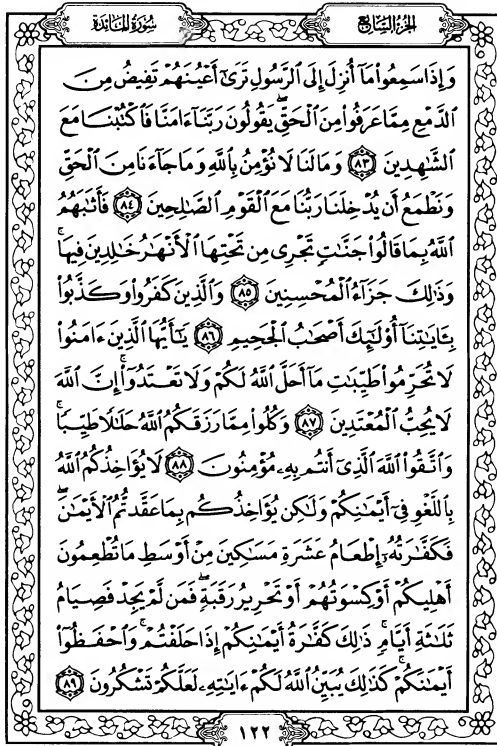 الجزء السابع
سورة المائدة
وَإِذَا سَمِعُوا۟ مَآ أُنزِلَ إِلَى ٱلرَّسُولِ تَرَىٰٓ أَعْيُنَهُمْ تَفِيضُ مِنَ
ٱلدَّمْعِ مِمَّا عَرَفُوا۟ مِنَ ٱلْحَقِّ ۖ يَقُولُونَ رَبَّنَآ ءَامَنَّا فَٱكْتُبْنَا مَعَ
ٱلشَّٰهِدِينَ ٨٣ وَمَالَنَا لَا نُؤْمِنُ بِٱللَّهِ وَمَا جَآءَنَا مِنَ ٱلْحَقِّ
وَنَطْمَعُ أَن يُدْخِلَنَا رَبُّنَا مَعَ ٱلْقَوْمِ ٱلصَّٰلِحِينَ ٨٤ فَأَثَٰبَهُمُ
ٱللَّهُ بِمَا قَالُوا۟ جَنَّٰتٍ تَجْرِى مِن تَحْتِهَا ٱلْأَنْهَٰرُ خَٰلِدِينَ فِيهَا ۚ
وَذَٰلِكَ جَزَآءُ ٱلْمُحْسِنِينَ ٨٥ وَٱلَّذِينَ كَفَرُوا۟ وَكَذَّبُوا۟
بِـَٔايَٰتِنَآ أُو۟لَٰٓئِكَ أَصْحَٰبُ ٱلْجَحِيمِ ٨٦ يَٰٓأَيُّهَا ٱلَّذِينَ ءَامَنُوا۟
لَا تُحَرِّمُوا۟ طَيِّبَٰتِ مَآ أَحَلَّ ٱللَّهُ لَكُمْ وَلَا تَعْتَدُوٓا۟ ۚ إِنَّ ٱللَّهَ
لَا يُحِبُّ ٱلْمُعْتَدِينَ ٨٧ وَكُلُوا۟ مِمَّا رَزَقَكُمُ ٱللَّهُ حَلَٰلًا طَيِّبًا ۚ
وَٱتَّقُوا۟ ٱللَّهَ ٱلَّذِىٓ أَنتُم بِهِۦ مُؤْمِنُونَ ٨٨ لَا يُؤَاخِذُكُمُ ٱللَّهُ
بِٱللَّغْوِ فِىٓ أَيْمَٰنِكُمْ وَلَٰكِن يُؤَاخِذُكُم بِمَا عَقَّدتُّمُ ٱلْأَيْمَٰنَ ۖ
فَكَفَّٰرَتُهُۥٓ إِطْعَامُ عَشَرَةِ مَسَٰكِينَ مِنْ أَوْسَطِ مَا تُطْعِمُونَ
أَهْلِيكُمْ أَوْ كِسْوَتُهُمْ أَوْ تَحْرِيرُ رَقَبَةٍ ۖ فَمَن لَّمْ يَجِدْ فَصِيَامُ
ثَلَٰثَةِ أَيَّامٍ ۚ ذَٰلِكَ كَفَّٰرَةُ أَيْمَٰنِكُمْ إِذَا حَلَفْتُمْ ۚ وَٱحْفَظُوٓا۟
أَيْمَٰنَكُمْ ۚ كَذَٰلِكَ يُبَيِّنُ ٱللَّهُ لَكُمْ ءَايَٰتِهِۦ لَعَلَّكُمْ تَشْكُرُونَ ٨٩
١٢٢